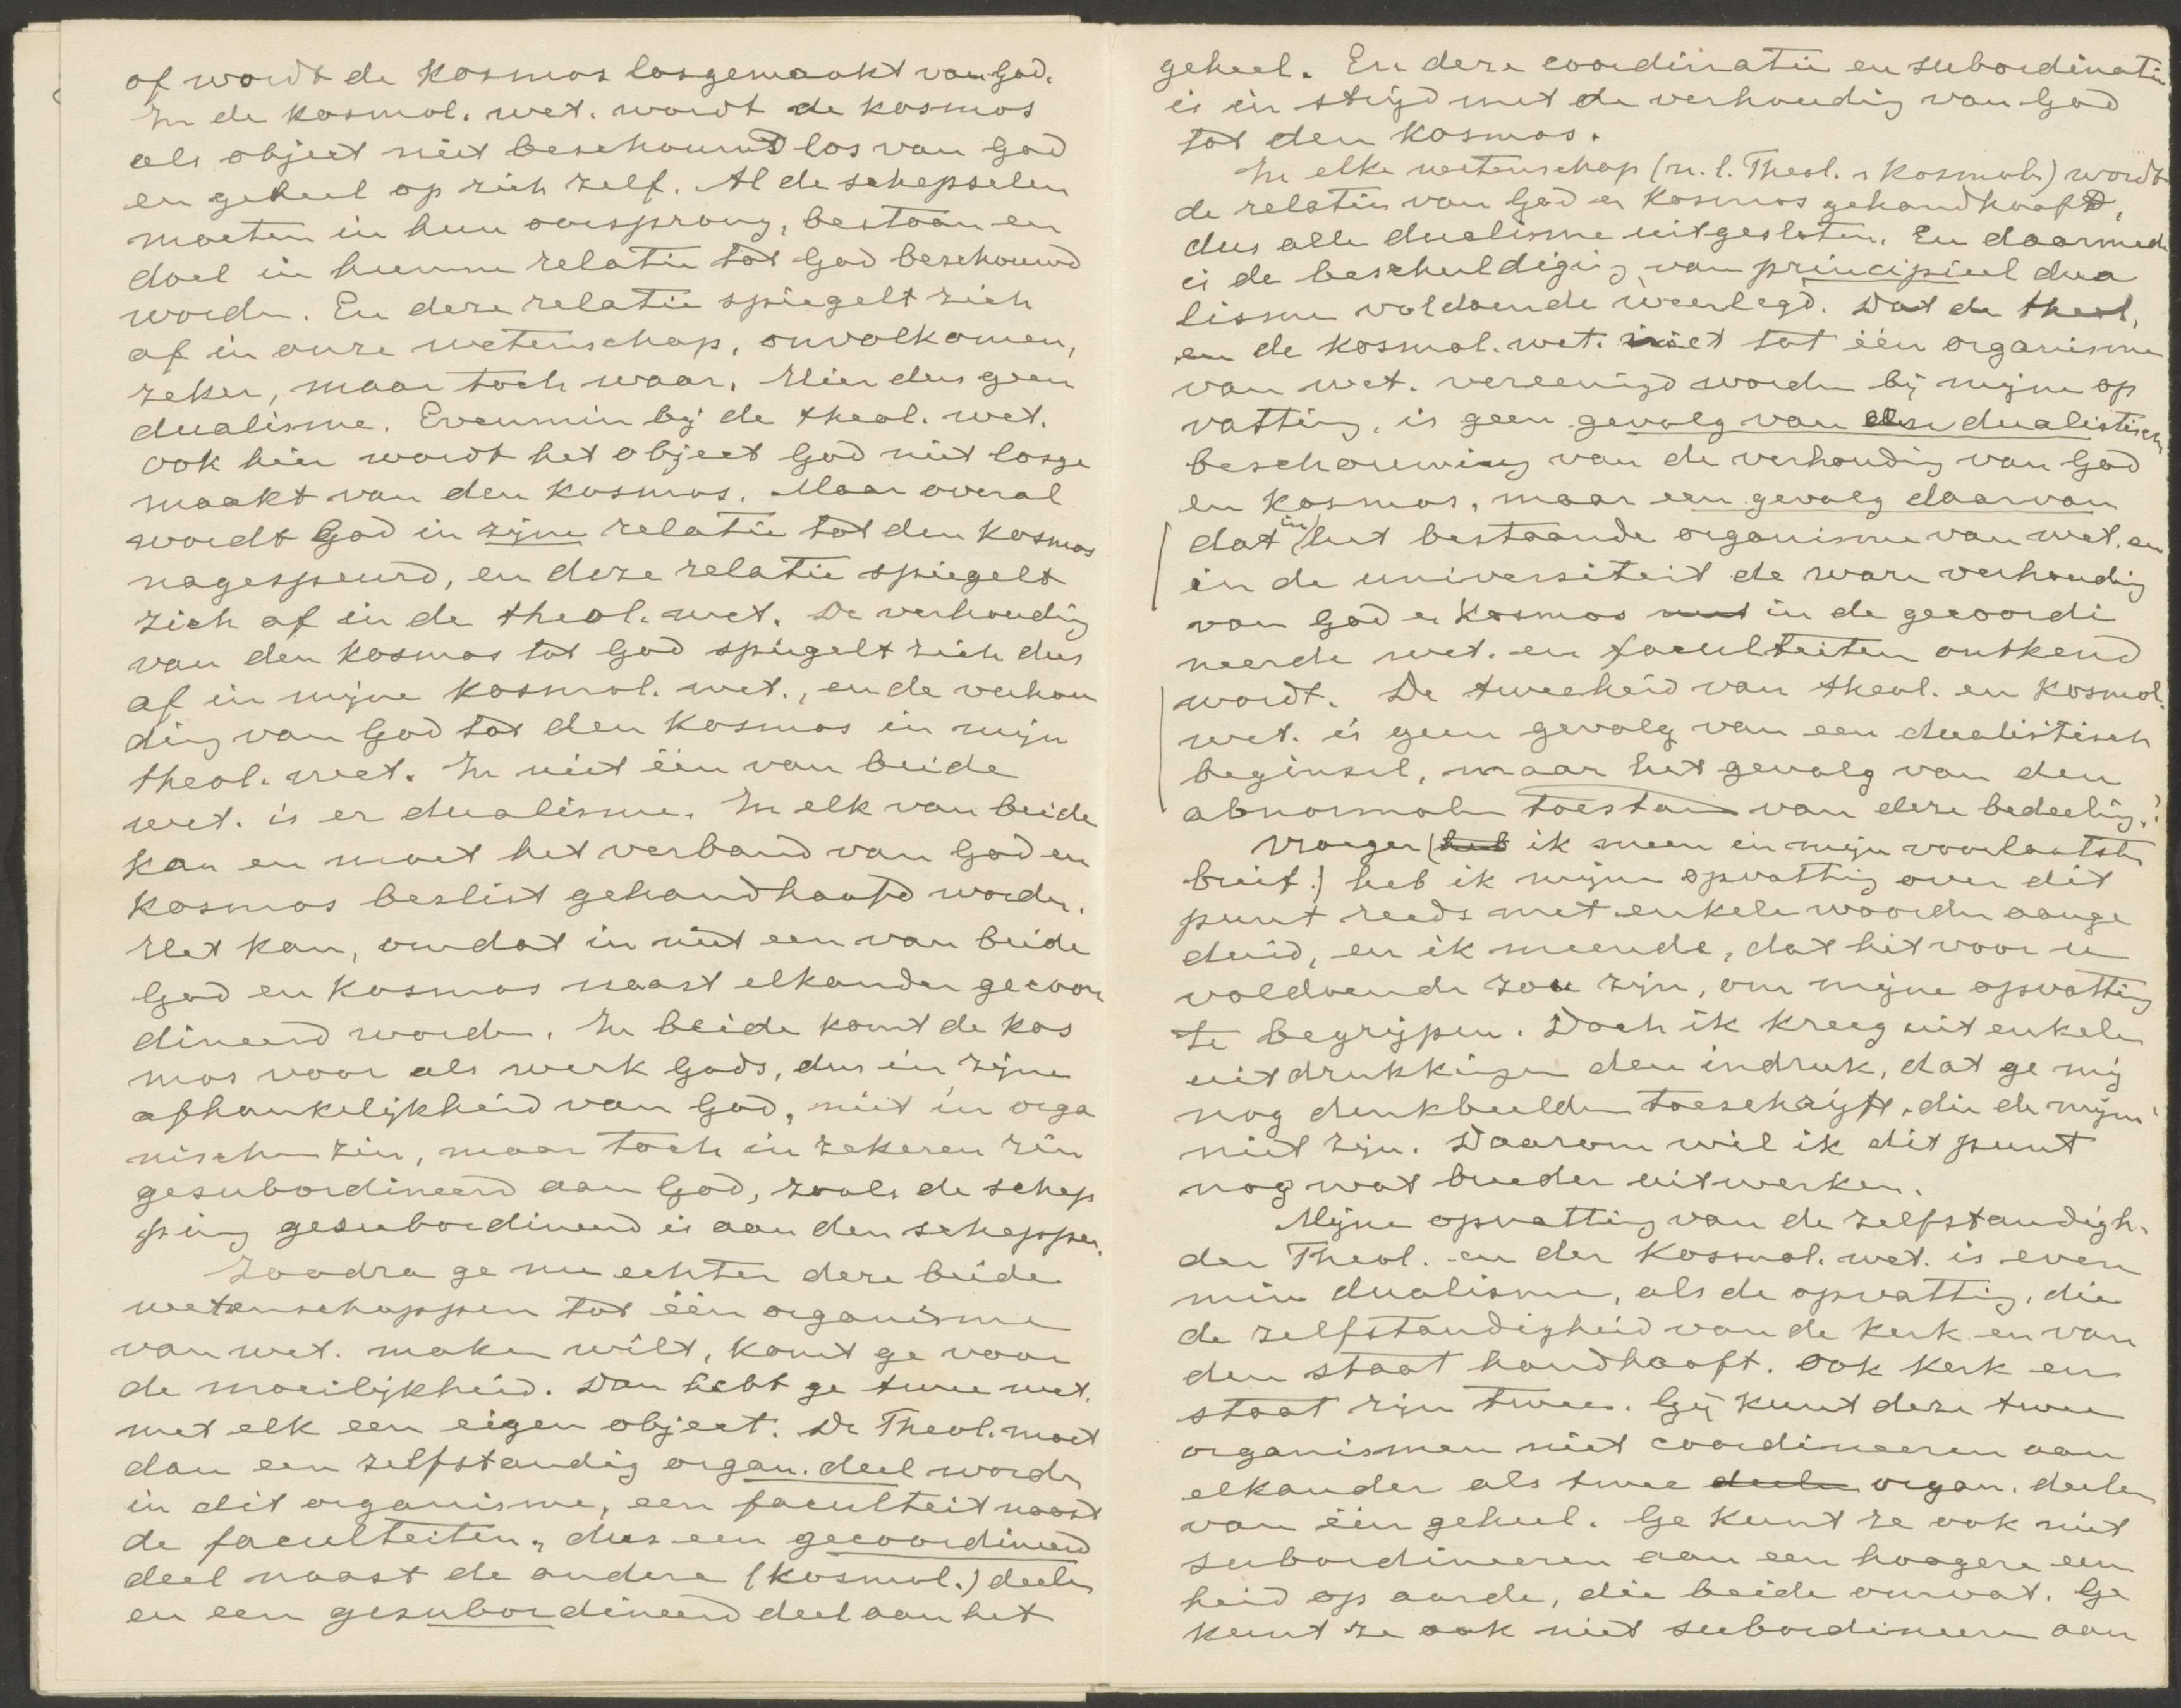 of wordt de kosmos losgemaakt van God.
In de kosmol. wet. wordt de kosmos
als object niet beschouwd los van God
en geheel op zich zelf. Al de schepselen
moeten in hun oorsprong, bestaan en
doel in hunne relatie tot God beschouwd
worden. En deze relatie spiegelt zich
af in onze wetenschap, onvolkomen,
zeker, maar toch waar. Hier dus geen
dualisme. Evenmin bij de theol. wet.
ook hier wordt het object God niet losge
maakt van den kosmos. Maar overal
wordt God in zijne relatie tot den kosmos
nagespeurd, en deze relatie spiegelt
zich af in de theol. wet. De verhouding
van den kosmos tot God spiegelt zich dus
af in mijne kosmol. wet., en de verhou
ding van God tot den kosmos in mijn
theol. wet. In niet één van beide
wet. is er dualisme. In elk van beide
kan en moet het verband van God en
kosmos beslist gehandhaafd worden.
Het kan, omdat in niet een van beide
God en kosmos naast elkander gecoor
dineerd worden. In beide komt de kos
mos voor als werk Gods, dus in zijne
afhankelijkheid van God, niet in orga
nischen zin, maar toch in zekeren zin
gesubordineerd aan God, zooals de schep
ping gesubordineerd is aan den schepper.
Zoodra ge nu echter deze beide
wetenschappen tot één organisme
van wet. maken wilt, komt ge voor
de moeilijkheid. Dan hebt ge twee wet.
met elk een eigen object. De Theol. moet
dan een zelfstandig organ. deel worden
in dit organisme, een faculteit naast
de faculteiten, dus een gecoordineerd
deel naast de andere (kosmol.) deelen
en een gesubordineerd deel aan het
geheel. En deze coordinatie en subordinatie
is in strijd met de verhouding van God
tot den kosmos.
In elke wetenschap (n.l. Theol. & kosmol.) wordt
de relatie van God en kosmos gehandhaafd,
dus alle dualisme uitgesloten. En daarmede
is de beschuldiging van principieel dua
lisme voldoende weerlegd. Dat de theol.
en de kosmol. wet. niet tot één organisme
van wet. vereenigd worden bij mijne op
vatting, is geen gevolg van een dualistische
beschouwing van de verhouding van God
en kosmos, maar een gevolg daarvan
dat in het bestaande organisme van wet. en
in de universiteit de ware verhouding
van God en kosmos met in de gecoordi
neerde wet. en faculteiten ontkend
wordt. De tweeheid van theol. en kosmol.
wet. is geen gevolg van een dualistisch
beginsel, maar het gevolg van den
abnormalen toestand van deze bedeeling.?
Vroeger (heb ik meen in mijn voorlaatste
brief.) heb ik mijne opvatting over dit
punt reeds met enkele woorden aange
duid, en ik meende, dat het voor u
voldoende zou zijn, om mijne opvatting
te begrijpen. Doch ik kreeg uit enkele
uitdrukkingen den indruk, dat ge mij
nog denkbeelden toeschrijft, die de mijne
niet zijn. Daarom wil ik dit punt
nog wat breeder uitwerken.
Mijne opvatting van de zelfstandigh.
der Theol. en der kosmol. wet. is even
min dualisme, als de opvatting, die
de zelfstandigheid van de kerk en van
den staat handhaaft. Ook kerk en
staat zijn twee. Gij kunt deze twee
organismen niet coordineeren aan
elkander als twee deelen organ. deelen
van één geheel. Ge kunt ze ook niet
subordineeren aan een hoogere een
heid op aarde, die beide omvat. Ge
kunt ze ook niet subordineeren aan